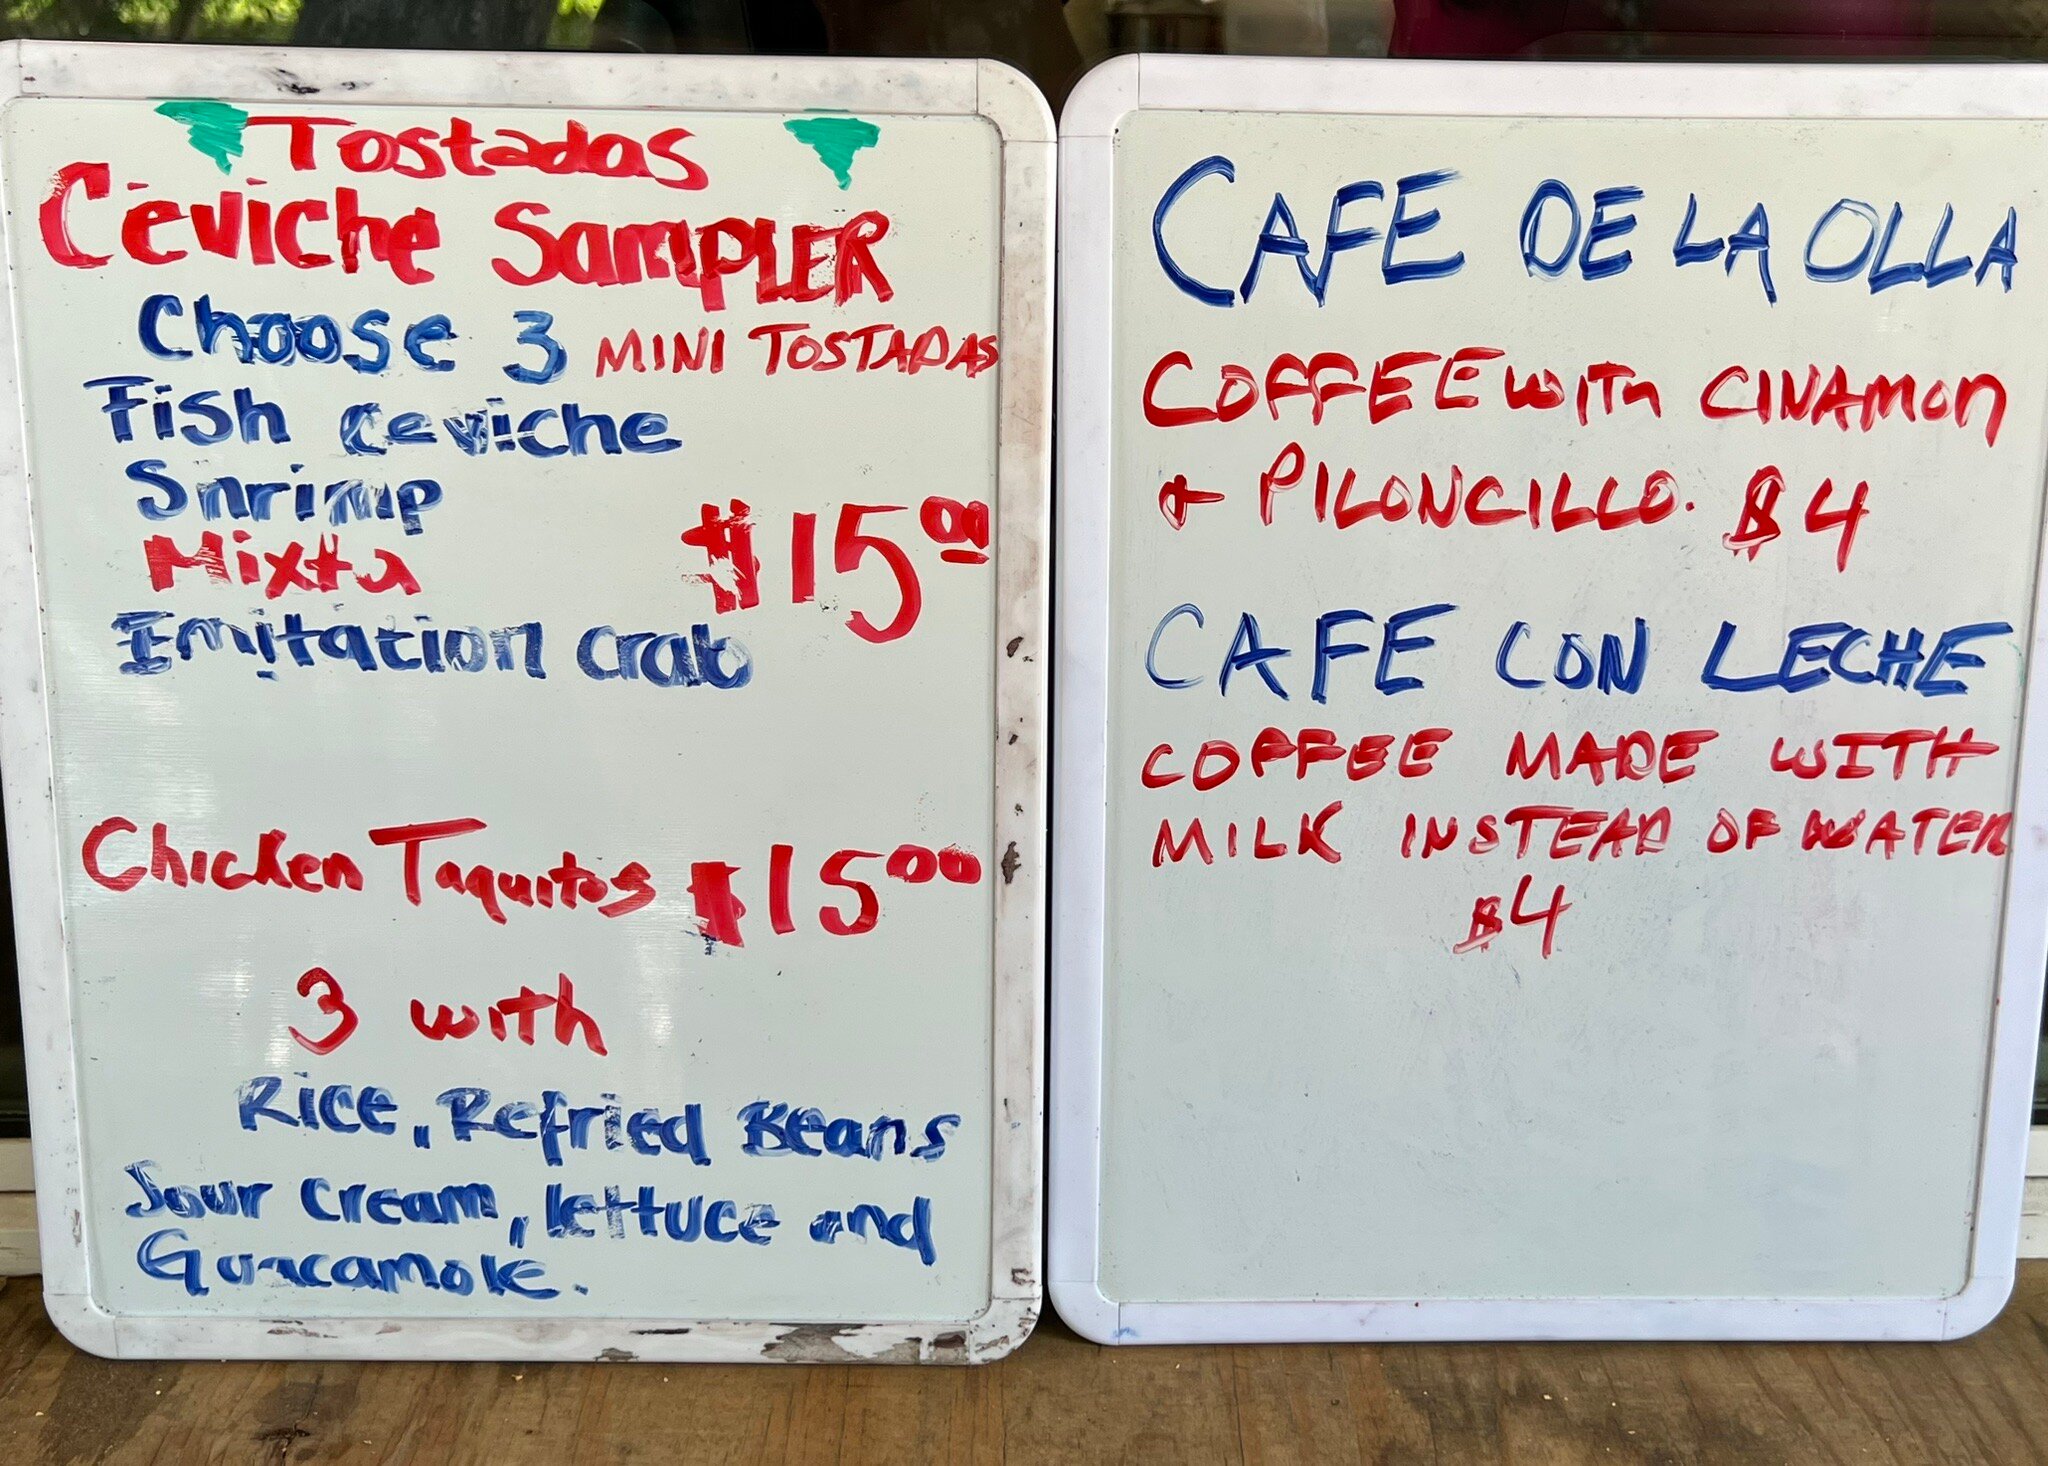 Tostadas
Ceviche SamPLER
Choose 3 MINI TOSTADAS
Fish ceviche
Shrimp
Mixta
$15.00
Imitation crab
Chicken Taquitos $15.00
3 with
Rice, Refried Beans
Sour cream, lettuce and
Guacamole.
CAFE DE LA OLLA
COFFEE with CINAMON
& PILONCILLO. $4
CAFE CON LECHE
COFFEE MADE WITH
MILK INSTEAD OF WATER
$4